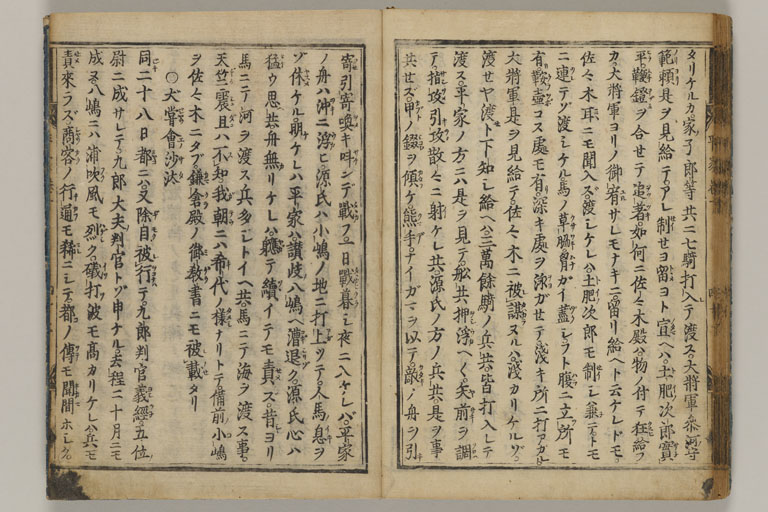 タリケルカ家子郎等共ニ七騎打入テ渡ス大將軍参河守
範頼是ヲ見給テアレ制セヨ留ヨト宣ヘハ土肥次郎實
平鞭鐙ヲ合セテ追著如何ニ佐々木殿ハ物ノ付テ狂給フ
カ大將軍ヨリノ御宥サレモナキニ留リ給ヘト云ケレトモ
佐々木耳ニモ聞入ス渡シケレハ土肥次郎モ制シ兼テトモ
ニ連テソ渡シケル馬ノ草脇胷カイ盡シフト腹ニ立所モ
有鞍壷コス處モ有深キ處ヲ泳ガセテ淺キ所ニ打アカル
大將軍是ヲ見給テ佐々木ニ被謀ヌルハ淺カリケルソ
渡セヤ渡ト下知シ給ヘハ三萬餘騎ノ兵共皆打入レテ
渡ス平家ノ方ニハ是ヲ見テ舩共押浮ヘ〱矢前ヲ調
テ指攻引攻散々ニ射ケレ共源氏ノ方ノ兵共是ヲ事
共セス甲ノ錣ヲ傾ケ熊手ナイガマヲ以テ敵ノ舟ヲ引
寄引寄喚キ呌ンデ戰フ一日戰暮シ夜ニ入ケレハ平家
ノ舟ハ沖ニ浮ヒ源氏ハ小嶋ノ地ニ打上ツテ人馬ノ息ヲ
ソ休ケル明ケレハ平家ハ讃岐ハ嶋ヘ漕退ク源氏心ハ
猛ウ思共舟無リケレハ軈テ續イテモ責ス昔ヨリ
馬ニテ河ヲ渡ス兵多シトイヘ共馬ニテ海ヲ渡ス事
天竺震旦ハ不知我朝ニハ希代ノ様ナリトテ備前小嶋
ヲ佐々木ニタブ鎌倉殿ノ御敎書ニモ被載タリ
〇大甞會沙汰
同二十八日都ニハ又除目被行テ九郎判官義經五位
尉ニ成サレテ九郎大夫判官トソ申ケル去程ニ十月ニモ
成ヌ八嶋ニハ浦吹風モ烈ク礒打波モ高カリケレハ兵モ
責來ラズ商客ノ行通モ稀ニシテ都ノ傳モ聞間ホシク